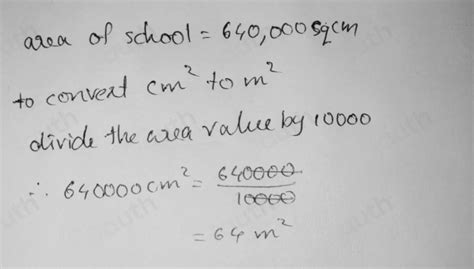 area of school = 640,000 sqcm
to convert cm² to m²
divide the area value by 10000
∴ 640000 cm² = 640000/10000
= 64 m²